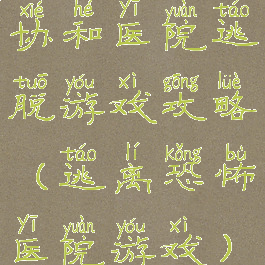 xié hé yī yuàn táo
协和医院逃
tuō yóu xì gōng lüè
脱游戏攻略
táo lí kǒng bù
（逃离恐怖
yī yuàn yóu xì
医院游戏）